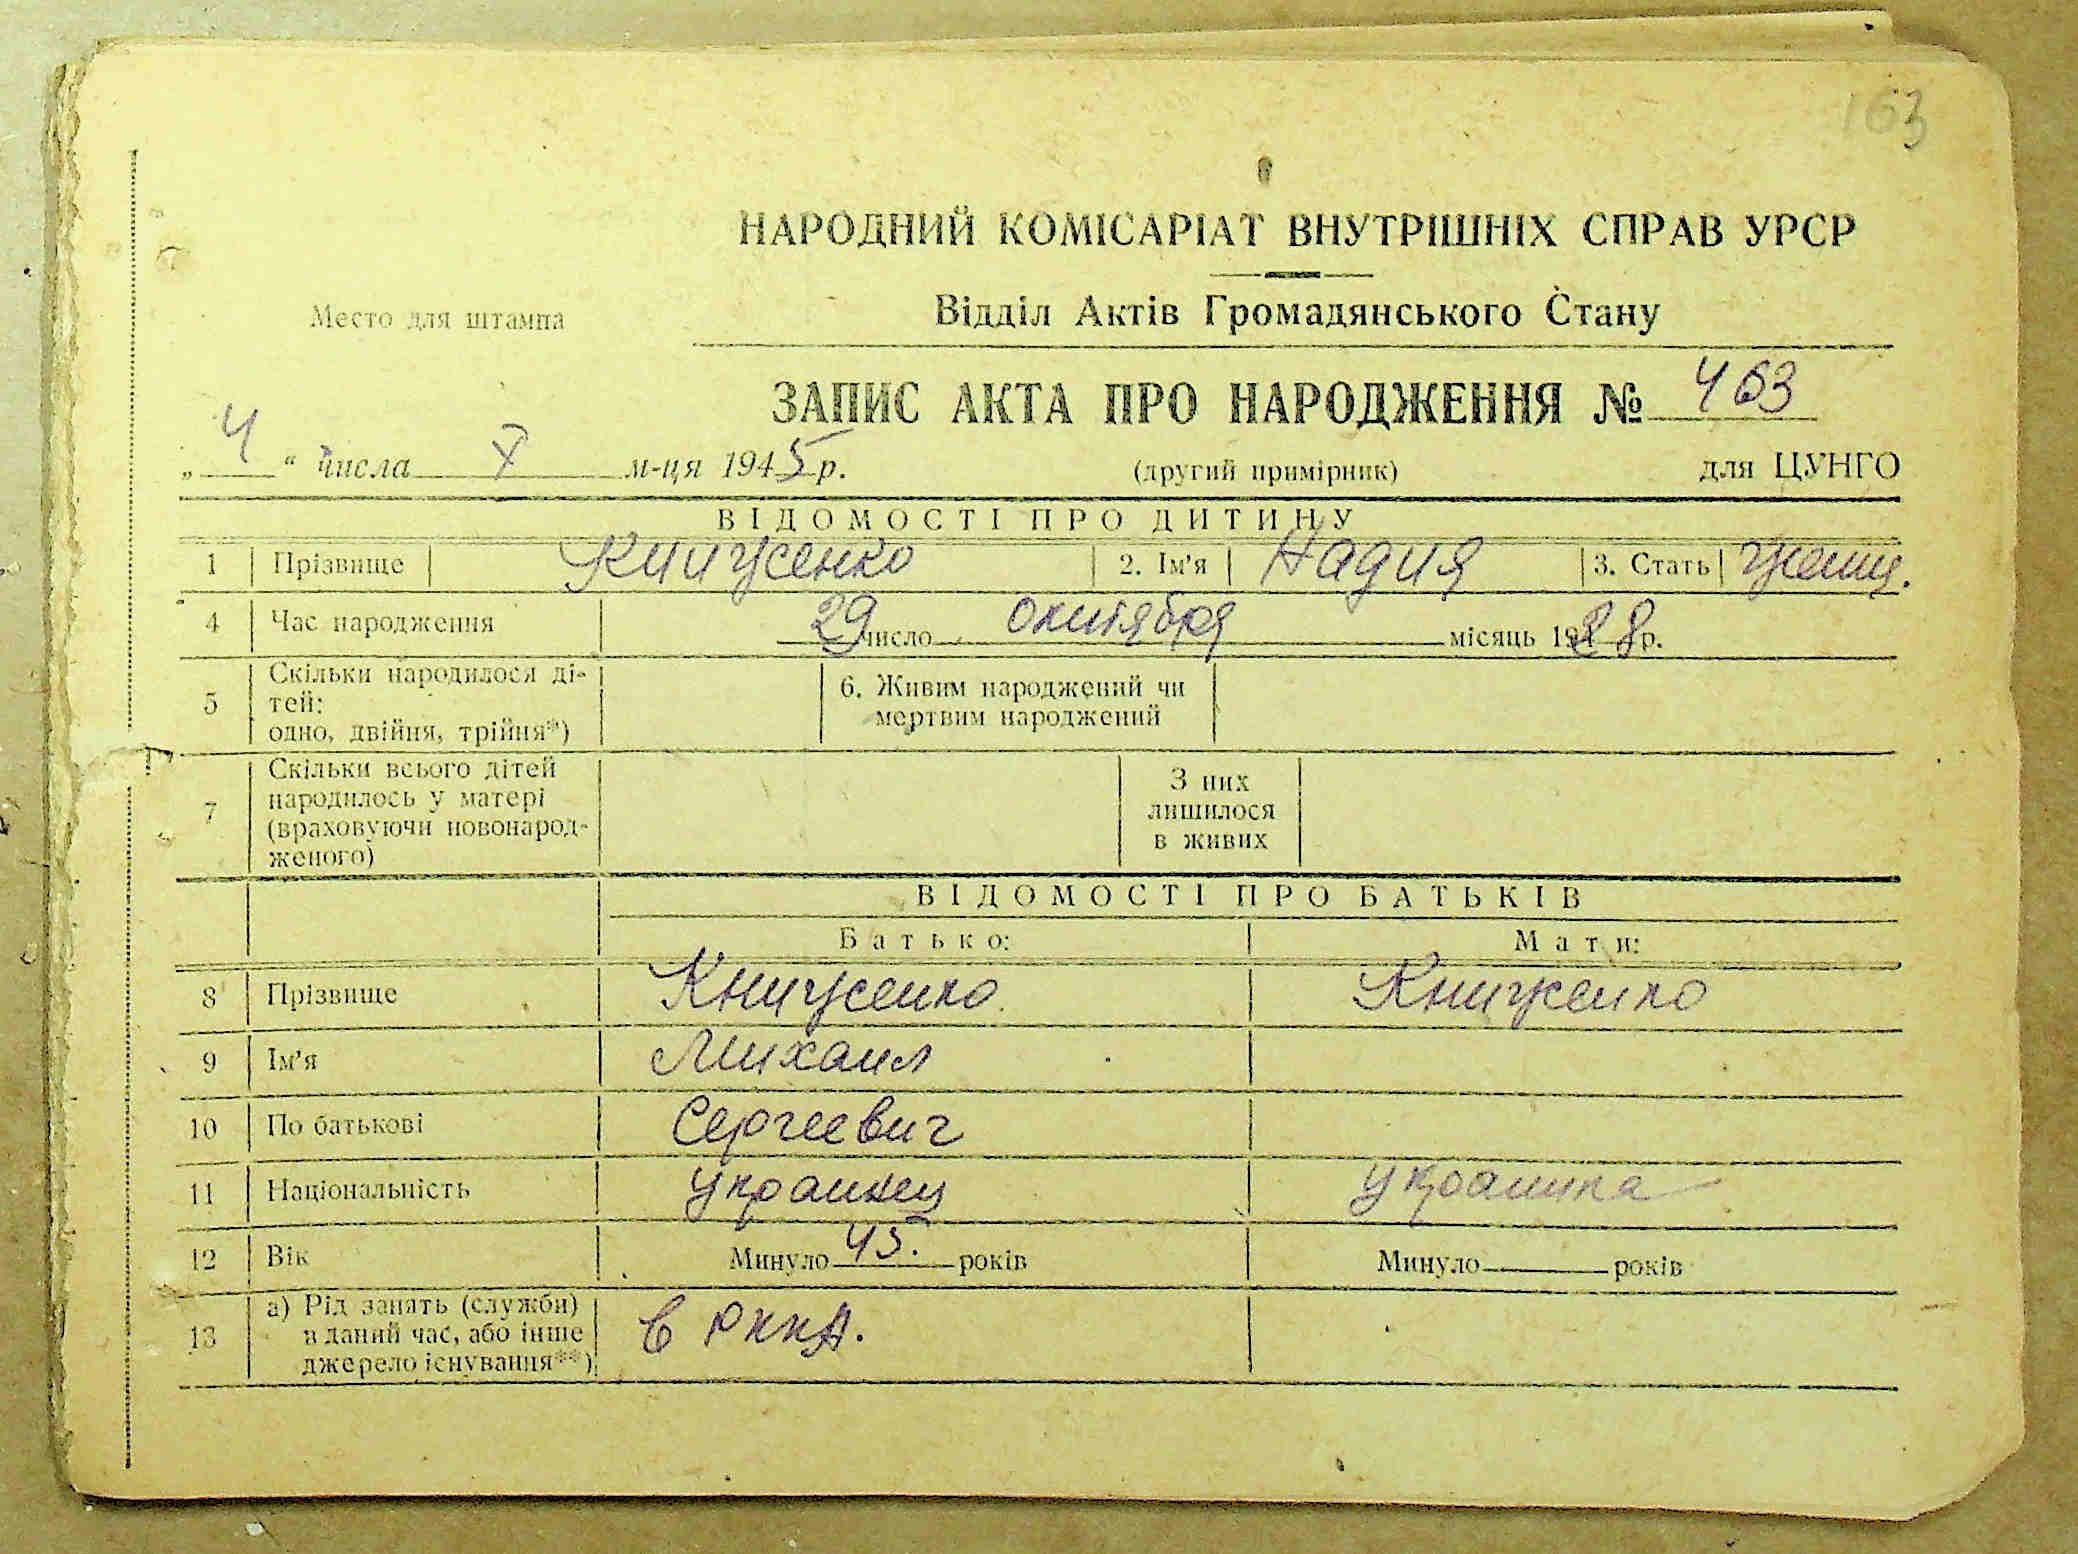 163
НАРОДНИЙ КОМІСАРІАТ ВНУТРІШНІХ СПРАВ УРСР
Место для штампа
Відділ Актів Громадянського Стану
ЗАПИС АКТА ПРО НАРОДЖЕННЯ № 463
„ 4 “ числа X м-ця 1945 р. (другий примірник) для ЦУНГО
ВІДОМОСТІ ПРО ДИТИНУ
1 Прізвище Книженко 2. Ім'я Надия 3. Стать женщ.
4 Час народження 29 число октября місяць 1928 р.
5 Скільки народилося ді-
тей:
одно, двійня, трійня*)
6. Живим народжений чи
мертвим народжений
7 Скільки всього дітей
народилось у матері
(враховуючи новонарод-
женого)
З них
лишилося
в живих
ВІДОМОСТІ ПРО БАТЬКІВ
Батько: Мати:
8 Прізвище Книженко Книженко
9 Ім'я Михаил
10 По батькові Сергеевич
11 Національність украинец украинка
12 Вік Минуло 45. років Минуло років
13 а) Рід занять (служби)
в даний час, або інше
джерело існування**)
в РККА.